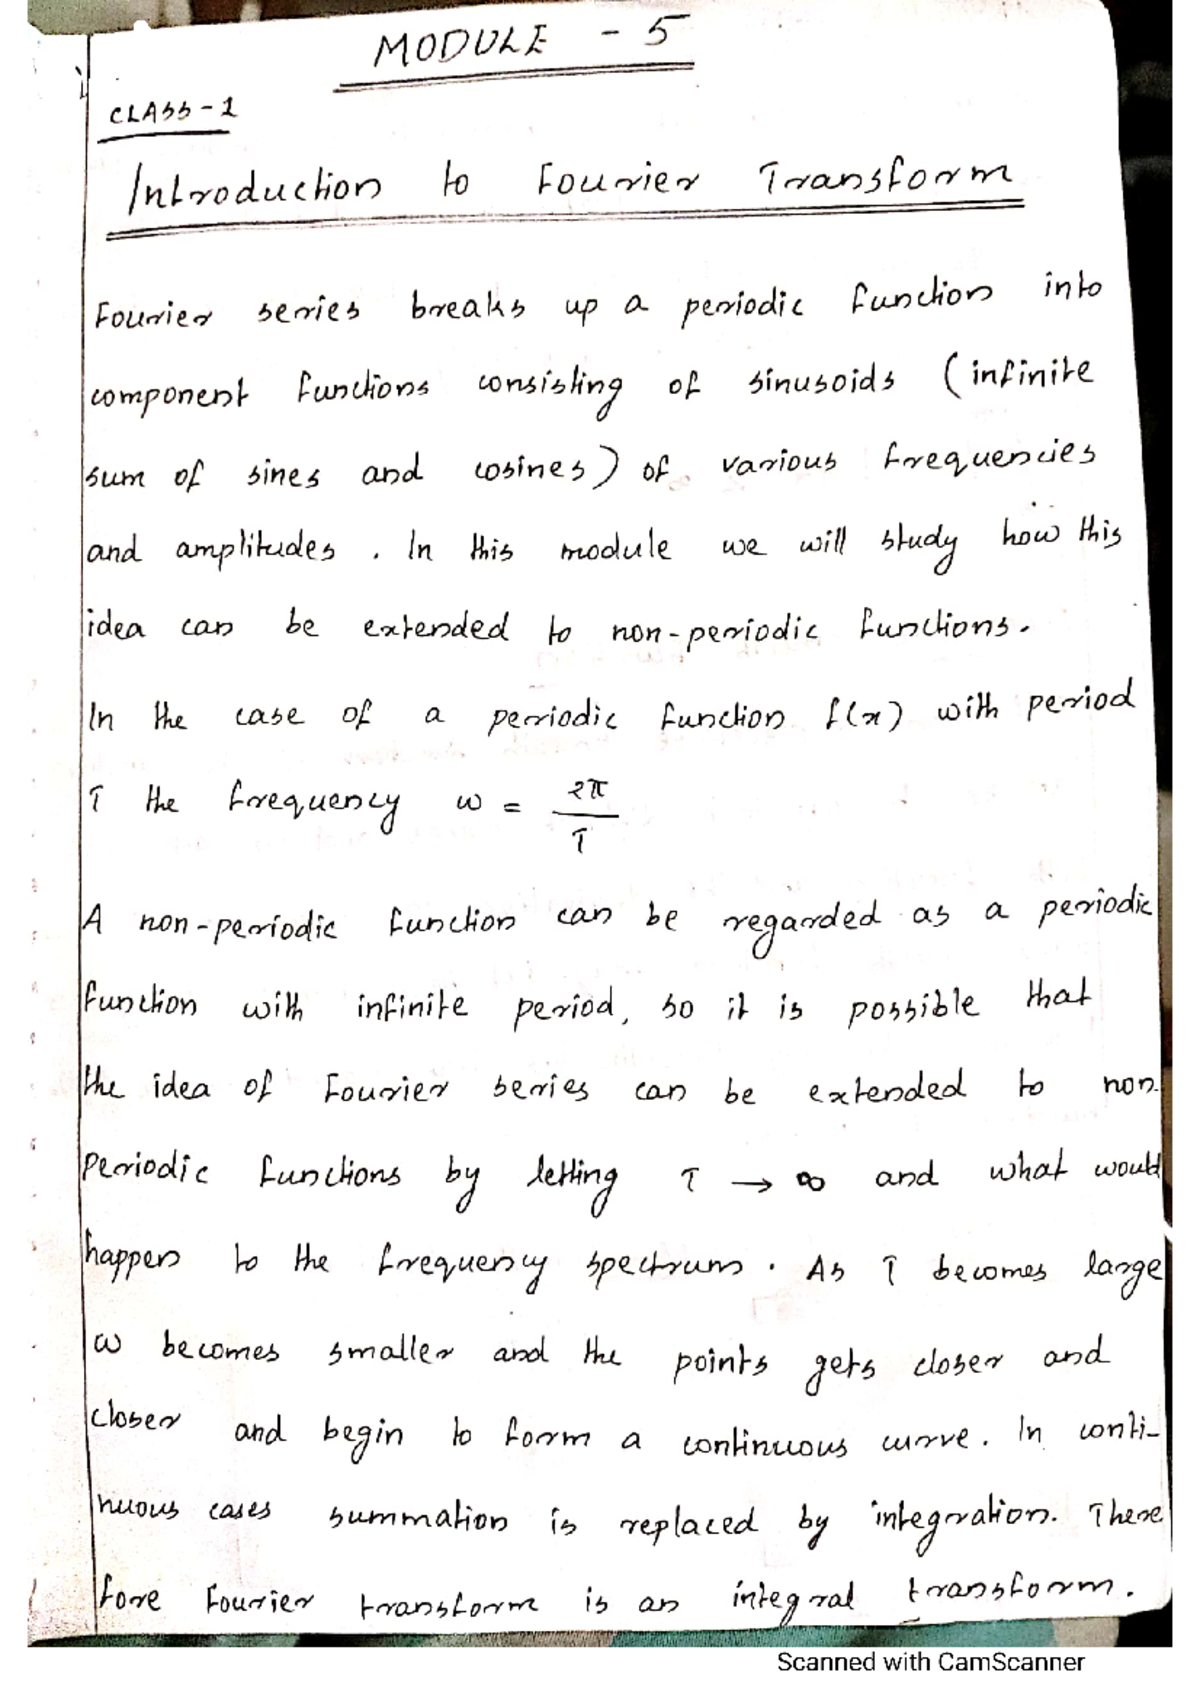 MODULE - 5
CLASS-1
Introduction to Fourier Transform
Fourier series breaks up a periodic function into
component functions consisting of sinusoids (infinite
sum of sines and cosines) of various frequencies
and amplitudes. In this module we will study how this
idea can be extended to non-periodic functions.
In the case of a periodic function f(x) with period
T the frequency ω = 2π/T
A non-periodic function can be regarded as a periodic
function with infinite period, so it is possible that
the idea of Fourier series can be extended to non-
periodic functions by letting T → ∞ and what would
happen to the frequency spectrum. As T becomes large
ω becomes smaller and the points gets closer and
closer and begin to form a continuous curve. In conti-
nuous cases summation is replaced by integration. There
fore Fourier transform is an integral transform.
Scanned with CamScanner